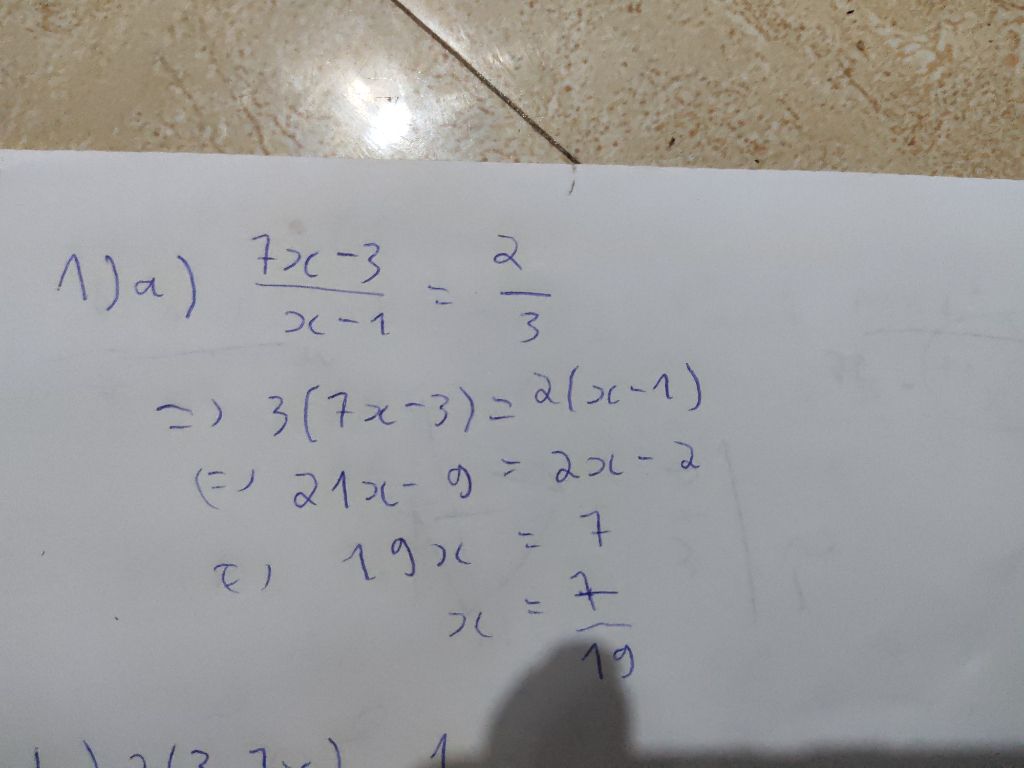 1) a) (7x-3)/(x-1) = 2/3
=> 3(7x-3) = 2(x-1)
<=> 21x - 9 = 2x - 2
<=> 19x = 7
x = 7/19